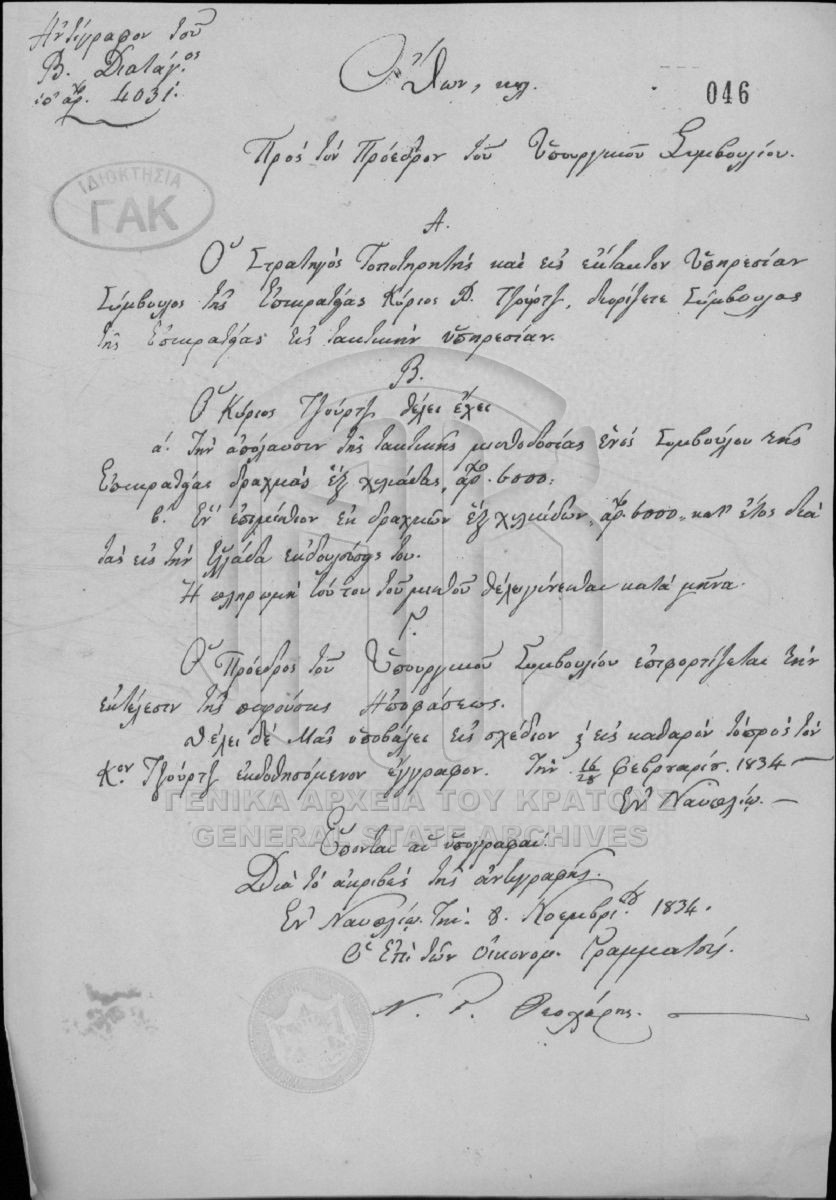 Ἀντίγραφον τοῦ
Β. Διατάγ.ος
ὑπ' ἀρ. 4031.
Ὄθων, κτλ.
046
Πρὸς τὸν Πρόεδρον τοῦ Ὑπουργικοῦ Συμβουλίου.
ΙΔΙΟΚΤΗΣΙΑ
ΓΑΚ
Α.
Ὁ Στρατηγὸς Τοποτηρητὴς καὶ εἰς ἔκτακτον ὑπηρεσίαν
Σύμβουλος τῆς Ἐπικρατείας Κύριος Ρ. Τζούρτζ, διορίζεται Σύμβουλος
τῆς Ἐπικρατείας εἰς τακτικὴν ὑπηρεσίαν.
Β.
Ὁ Κύριος Τζούρτζ θέλει ἔχει
α. τὴν ἀπόλαυσιν τῆς τακτικῆς μισθοδοσίας ἑνὸς Συμβούλου τῆς
Ἐπικρατείας δραχμὰς ἓξ χιλιάδας, ἀρ. 6000:
β. Ἓν ἐπιμίσθιον ἐκ δραχμῶν ἓξ χιλιάδων, ἀρ. 6000,, κατ' ἔτος διὰ
τὰς εἰς τὴν Ἑλλάδα ἐκδουλεύσεις του.
Ἡ πληρωμὴ τούτου τοῦ μισθοῦ θέλει γίνεσθαι κατὰ μῆνα.
Γ.
Ὁ Πρόεδρος τοῦ Ὑπουργικοῦ Συμβουλίου ἐπιφορτίζεται τὴν
ἐκτέλεσιν τῆς παρούσης Ἀποφάσεως.
Θέλει δὲ Μᾶς ὑποβάλει εἰς σχέδιον ἢ εἰς καθαρὸν τὸ πρὸς τὸν
Κον Τζούρτζ ἐκδοθησόμενον ἔγγραφον. Τὴν 16/28 Φεβρουαρίου 1834 —
Ἐν Ναυπλίῳ. —
ΓΕΝΙΚΑ ΑΡΧΕΙΑ ΤΟΥ ΚΡΑΤΟΥΣ
GENERAL STATE ARCHIVES
Ἕπονται αἱ ὑπογραφαί.
Διὰ τὸ ἀκριβὲς τῆς ἀντιγραφῆς.
Ἐν Ναυπλίῳ τὴν 8. Νοεμβρίου 1834.
Ὁ Ἐπὶ τῶν Οἰκονομ. Γραμματεύς.
Ν. Γ. Θεοχάρης.